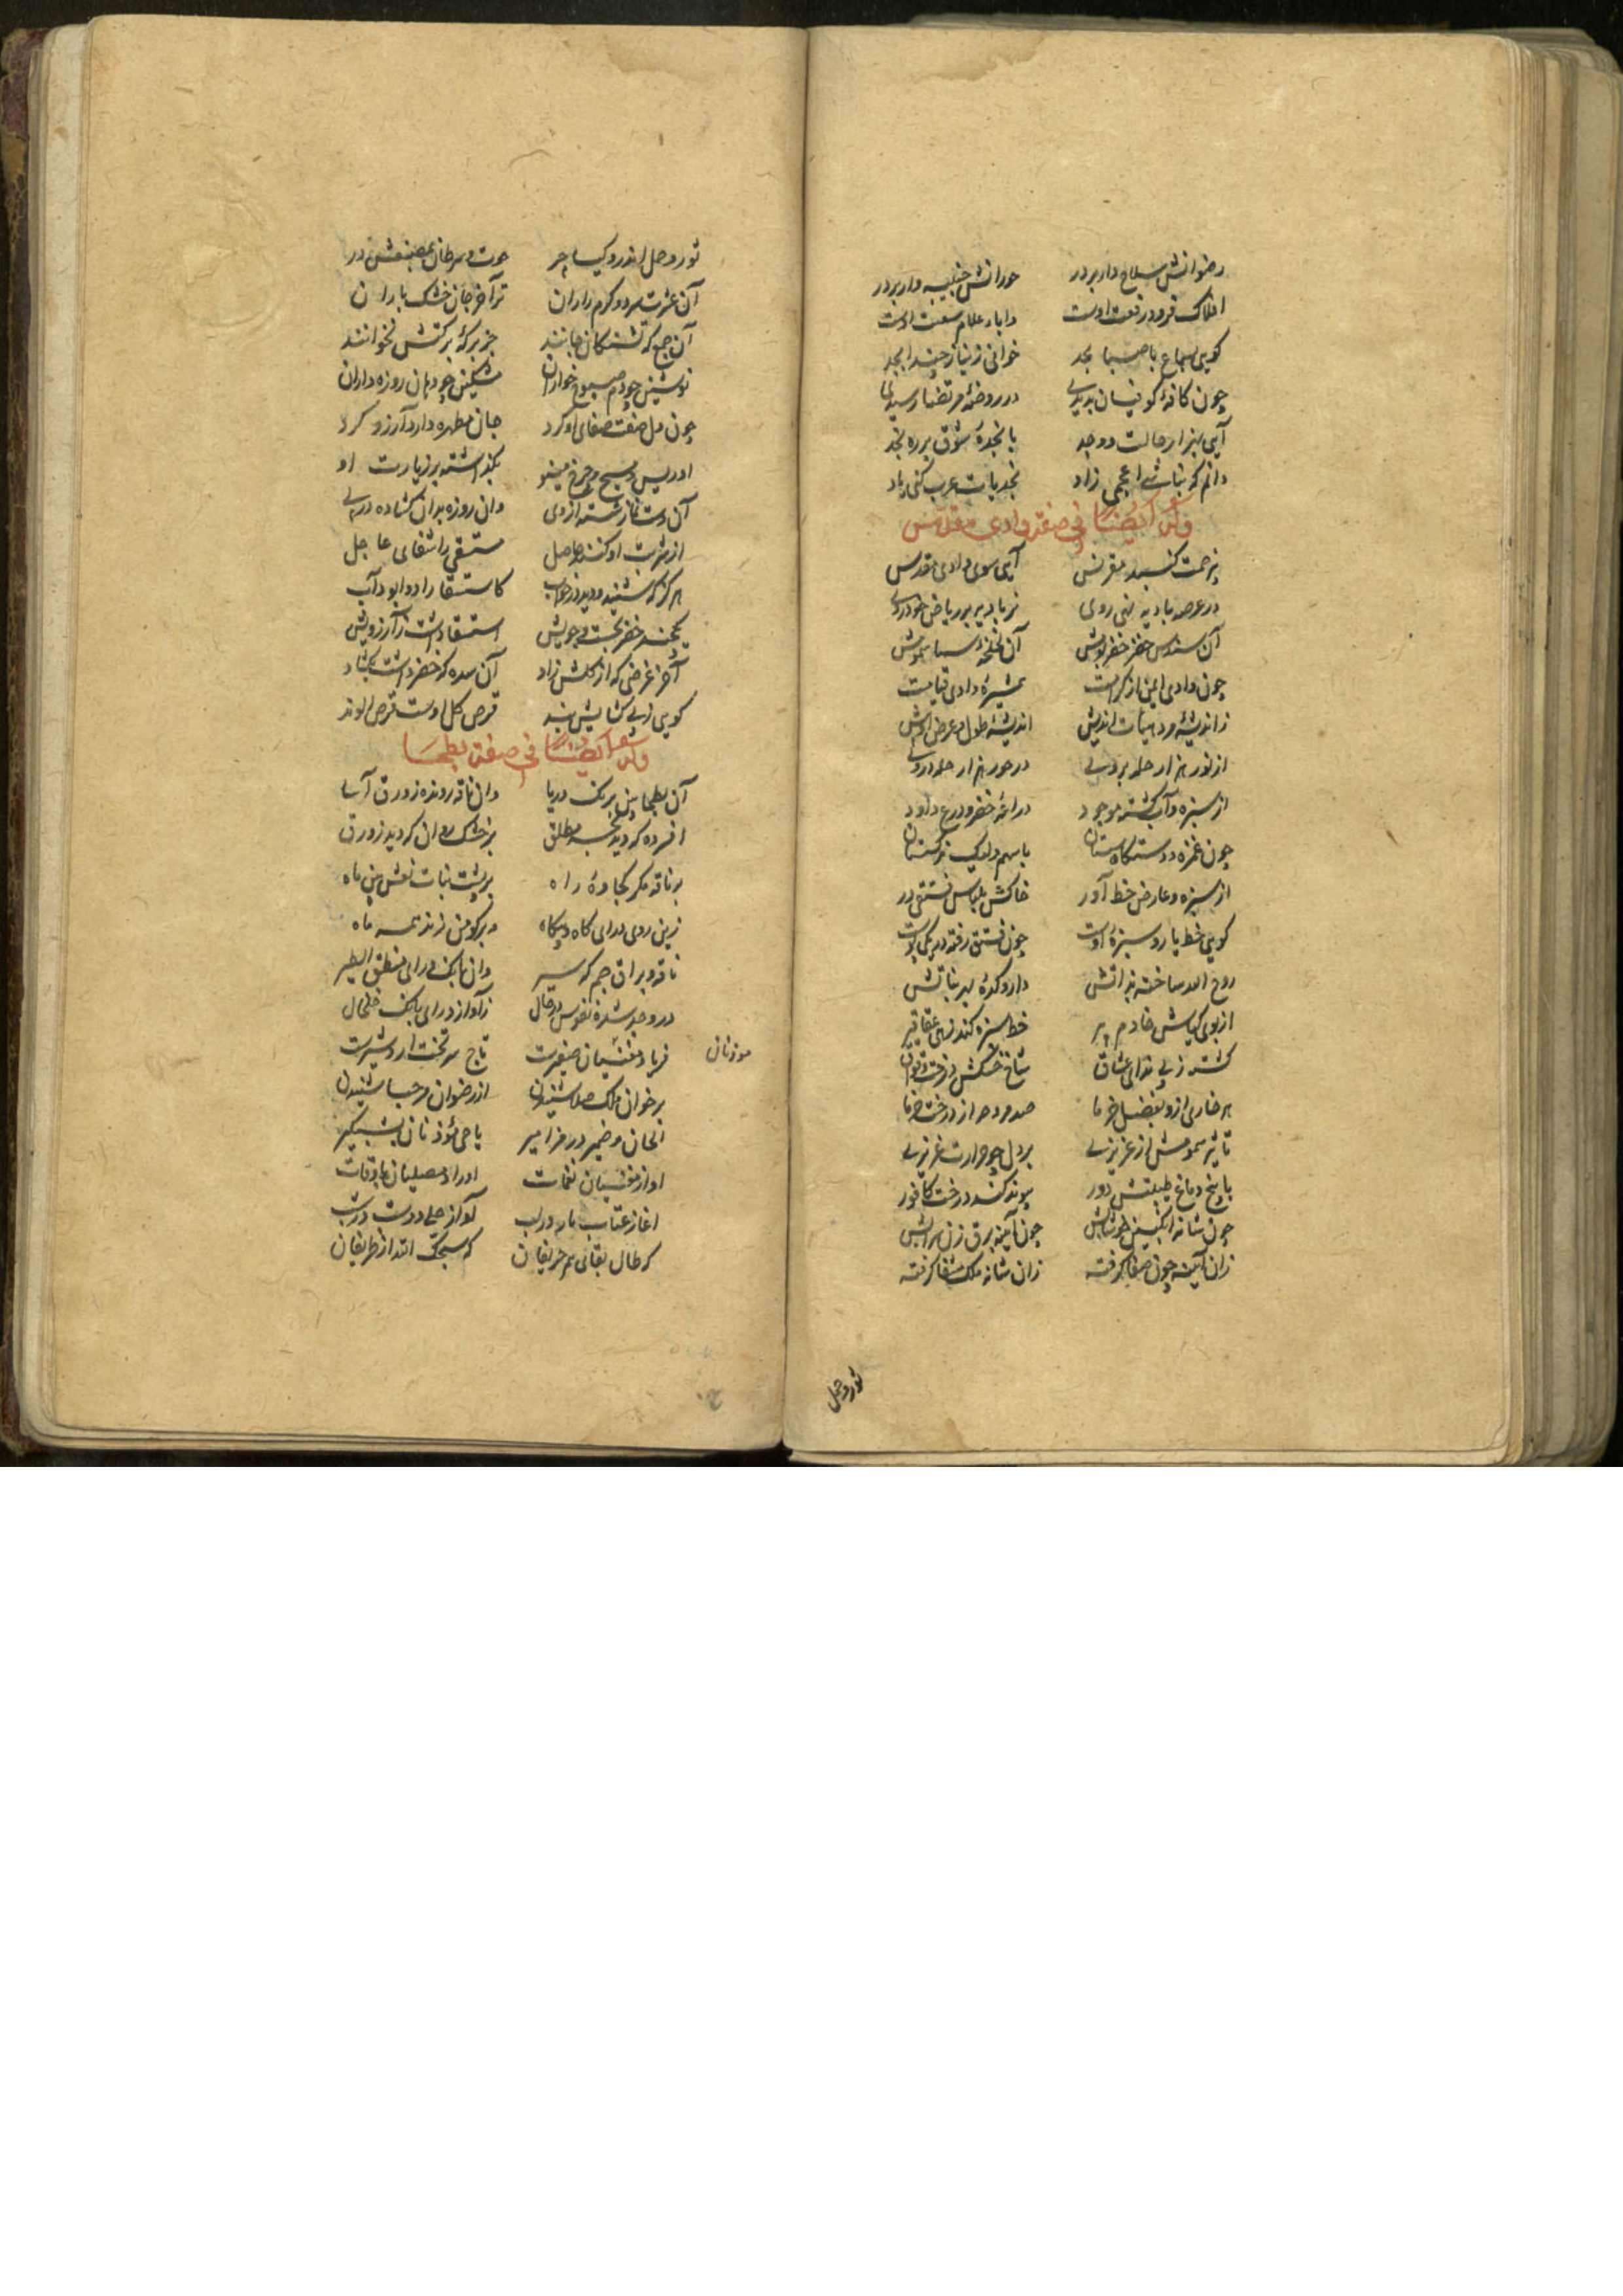 رضوانش سلاح دار بر در حورانش جنیبه دار بر در
افلاک فرود رفعت اوست دابار علام سعت اوست
کویی سماع با صبا نجد خوانی ز نیاز چند ابجد
چون کافهٔ کوفیان بدیدی در روضهٔ مرتضا رسیدی
آیی بهزار حالت و وجد با نجدهٔ شوق بر ره نجد
دانم که بنات اعجمی زاد نجدیات عرب کنی یاد
وله ایضا فی صفة وادی مقدس
بر حمت کنبد مقرنس آیی سوی وادی مقدس
در عرصه بادیه نهی روی نز بادیه بر ریاض خودروی
آن سندس خضر خضر پوشش آن لخلخه سا سمومش
چون وادی ایمن از کرامت همشیرهٔ وادی قیامت
ز اندیشه و دهیات اندیش اندیشهٔ طول و عرض او بیش
از نور هزار حله بر وی در حور هزار حله در وی
از سبزه و آب کشته موجود دراعهٔ خضر و درع داود
چون غمزه دوستکام ستان باسهم ولیک نرکستان
از سبزه و عارض خط آور خاکش بلباس فستقی در
کویی خط یار و سبزهٔ اوست چون فستق رفته در یکی پوست
روح الله ساخته بذاتش داروکدهٔ بهر نباتش
از بوی کیاش خادم پیر خط سبزه کند زهی عقاقیر
کشته ز پی ندای عشاق شاخ خشکش درخت وقواق
هر خاری ازو بفضل خرما صد ره به از درخت خرما
تاثیر سمومش از عزیزی بر دل چو حرارت غریزی
با یخ دماغ طینتش دور پیوند کند درخت کافور
چون شانه انکبین خوشابش چون آینه برق زن سرابش
زان آینه چون صفا کرفته زان شانه ملک شفا کرفته
ثور و حمل
ثور و حمل اندرو کیا چر حوت و سرطان بمصنعش در
آن عشرت سرد و کرم راران تر آخر جان خشک باران
آن جمع که تشنکان جانند جز برکهٔ برکتش نخوانند
نوشین چو دم صبوح خواران مشکین چو دهان روزه داران
چون دل صفت صفای او کرد جان مطهره دار آرزو کرد
ادریس و مسیح و چرخ مینو بکذاشته بر زیارت او
آن دست نماز شسته از وی وان روزه بدان کشاده در پی
از شربت او کنند حاصل مستسقی را شفای عاجل
هرکز که شنید و دید در خواب کاستسقا را دوا بود آب
یکچند خضر بجست و جویش استسقا داشت ز آرزویش
آخر غرضی که از کلش زاد آن سده که خضر داشت بکشاد
کویی ز پی کشایش بند قرص کل اوست قرص الوند
وله ایضا فی صفة بطحا
آن بطحا بین برنک دریا وان ناقه رونده زورق آسا
افسرده که دید بحر مطلق بر خشک روان که دید زورق
بر ناقه مکر کجاوهٔ راه بر پشت بنات نعش بین ماه
زرین روی درای کاه و بیکاه در بر کوفتن زند همه ماه
ناقه و براق جم که سیر وان بانک درای منطق الطیر
در وجد شده نفوس در حال ز آواز درای بانک خلخال
فریاد مغنیان صفیرت تاج سر تخت اردشیرت
موذنان
بر خوان ملک صلا شنیدن از رضوان مرحبا شنیدن
الحان و ضمیر در مزامیر یا حی مؤذنان بشبکیر
اواز مغنیان نغمات اوراد مصلیان باوقات
اغاز عتاب یار در لب آواز حلی دوست در شب
کرطال بقای هر حریفان که سبحک الله از ظریفان